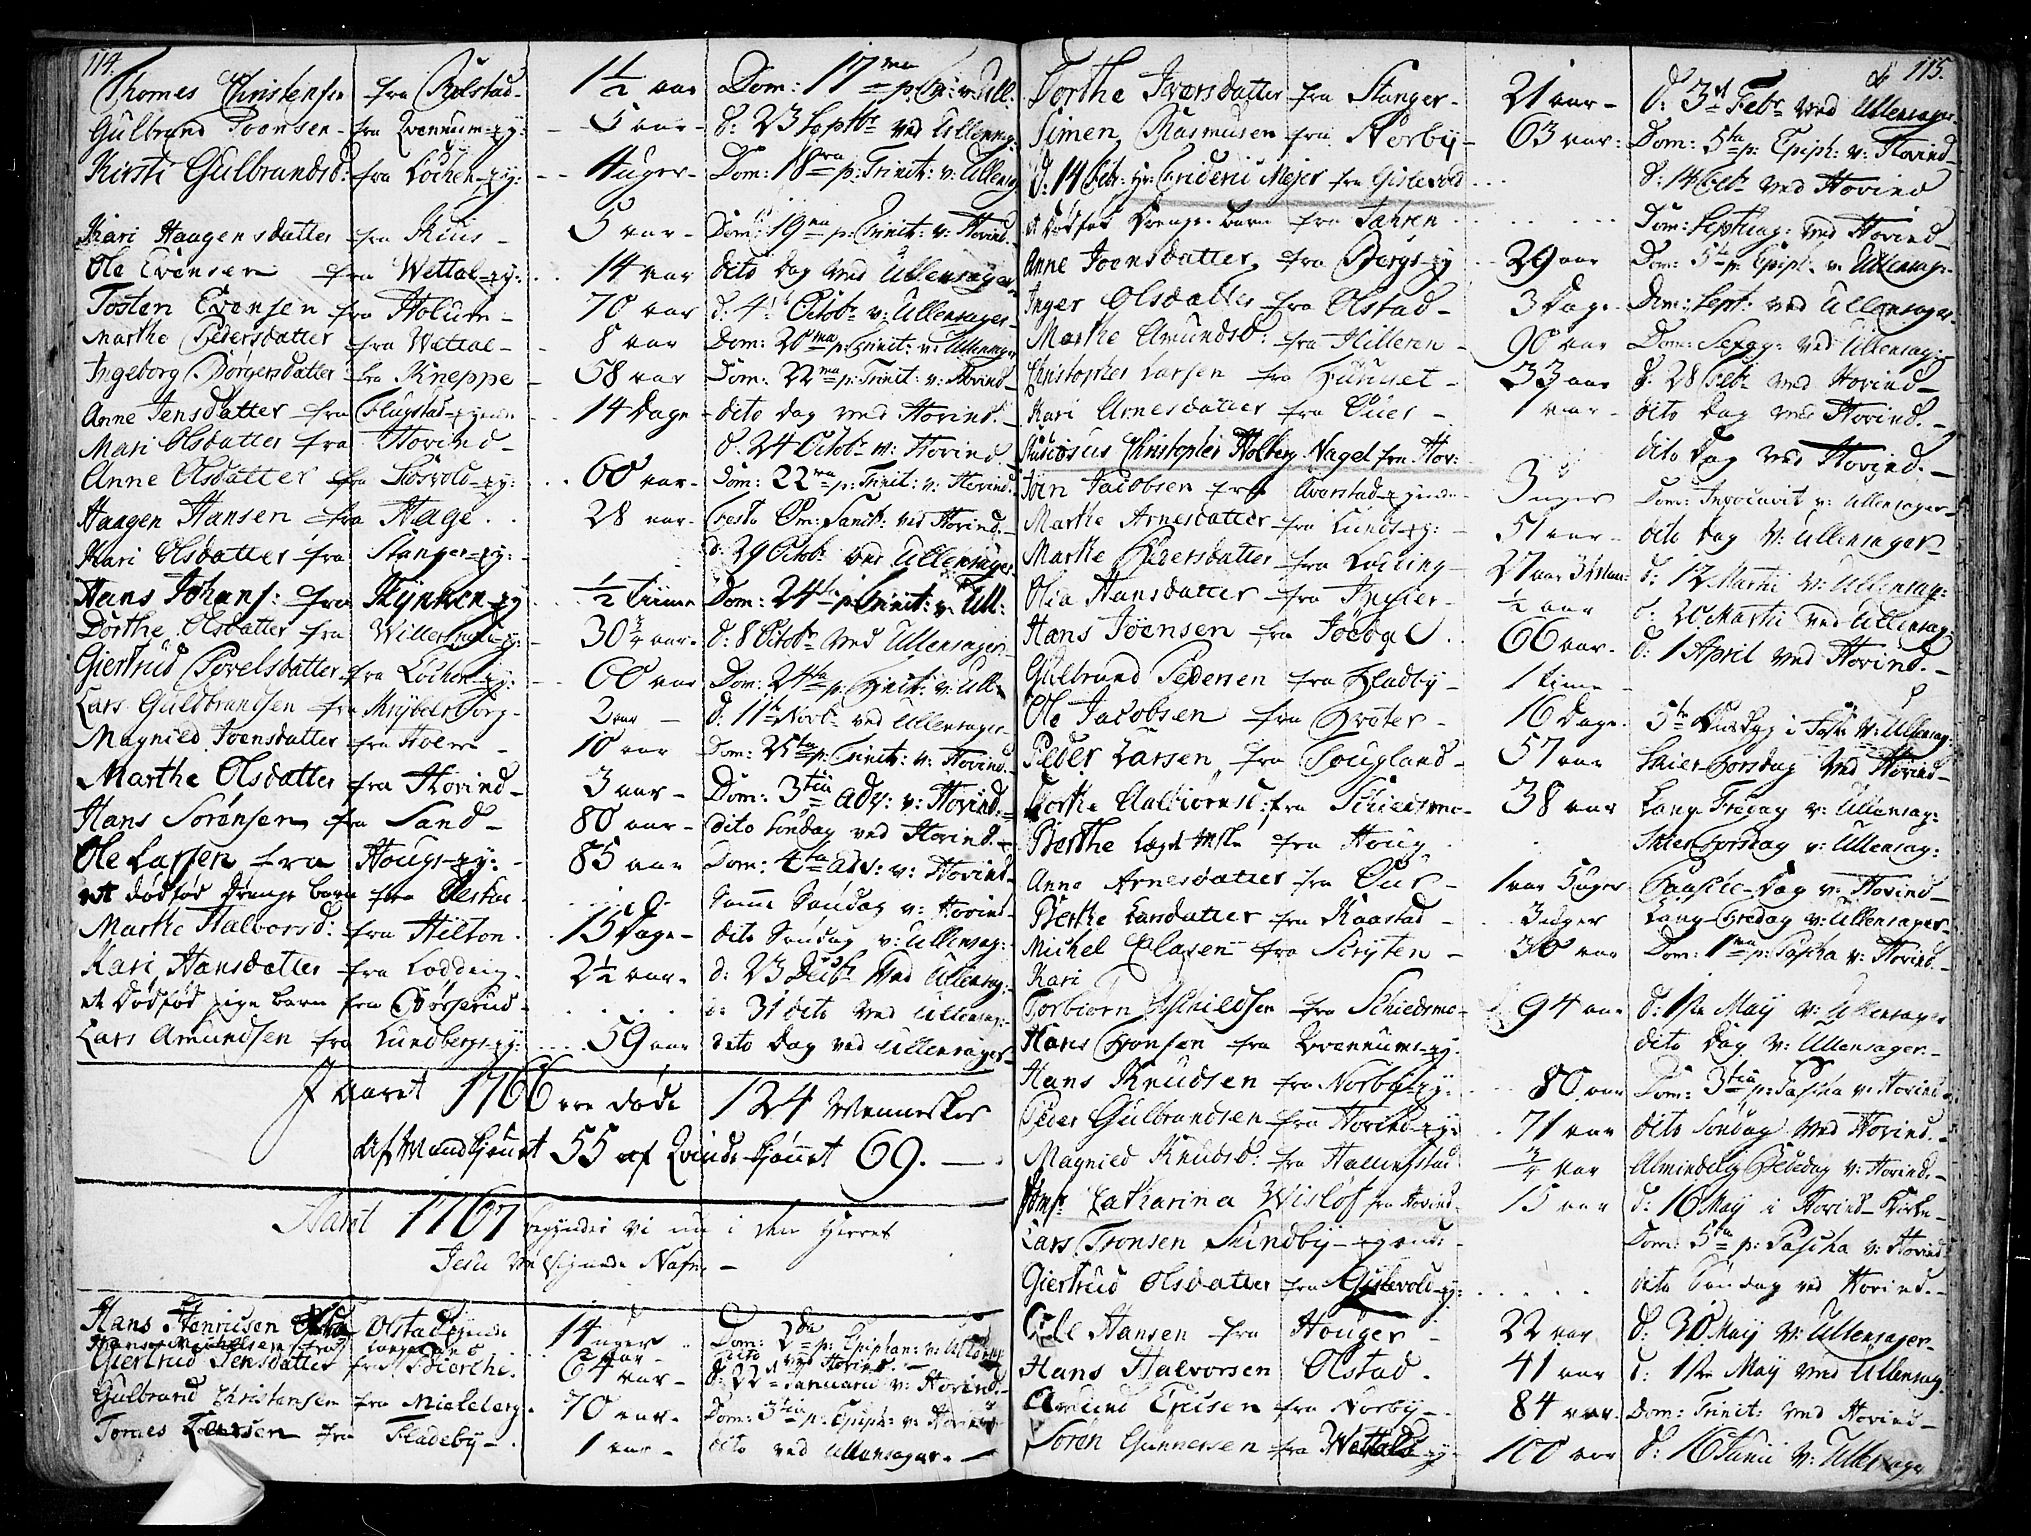 114.
Thomes Christensen fra Rolstad - 1½ aar Dom: 17ma p: Tri: v: Ull:
Gulbrand Joensen - fra Qvennum-ey: - 5 aar - d: 23 Septbr ved Ullensag:
Kirsti Gulbrandsd: fra Lochen-ey: - 4 uger - Dom: 18va p: Trinit: v: Ullensag
Kari Haagensdatter fra Riis - 5 aar - Dom: 19na p: Trinit: v: Hovind.
Ole Evensen fra Wettal-ey: 14 aar dito Dag ved Ullensager
Tosten Evensen fra Holum - 70 aar d: 4de Octobr v: Ullensager -
Marthe Pedersdatter fra Wettal - 8 aar Dom: 20ma p: Trinit: v: Ullensager
Ingeborg Børgersdatter fra Kneppe - 58 aar Dom: 22ma p: Trinit: v: Hovind -
Anne Jensdatter fra Flugstad-eyende 14 Dage - dito Dag ved Hovind. -
Mari Olsdatter fra Hovind - d: 24 Octobr v: Hovind
Anne Olsdatter fra -ey: 60 aar - Dom: 22ma p: Trinit: v: Hovind.
Haagen Hansen fra Hage. 28 aar - Festo Om: Sanct: ved Hovind. -
Kari Olsdatter fra Stanger-ey: d: 29 Octobr ved Ullensager
Hans Johans: fra Kynken-ey ½ time Dom: 24de p: Trinit: v: Ull:
Dorthe Olsdatter fra Willerstad-ey: - 30¾ aar. d: 8 Octobr ved Ullensager
Giertrud Povelsdatter fra Lochen-ey: 60 aar Dom: 24ta p: Trinit: v: Ull:
Lars Guldbrandsen fra Korg - 2 aar - d: 11te Novbr ved Ullensager
Magnild Joensdatter fra Holm - 10 aar Dom: 25ta p: Trinit: v: Hovind.
Marthe Olsdatter fra Hovind - 3 aar - Dom: 3tia Adv: v: Hovind.
Hans Sørensen fra Sand - 80 aar - dito Søndag ved Hovind. -
Ole Larsen fra Hougs-ey: 85 aar Dom: 4ta Adv: v: Hovind.
et dødfød Drenge barn fra Samme Søndag v: Hovind -
Marthe Halvorsd: fra Hilton. 15 Dage - dito Søndag v: Ullensag:
Kari Hansdatter fra Lodding. 2½ aar. d: 23 Decbr ved Ullensag:
et dødfød pige barn fra Børserud - d: 31 dito ved Ullensag:
Lars Amundsen fra Lundbergs-ey: 59 aar dito Dag ved Ullensager -
I aaret 1766 ere døde 124 Mennesker
Af Mandkjønet 55 af Qvindekjønnet 69. -
Aaret 1767 begynder vi nu i den Herres
Jesu velsignede Nafn -
Hans Henricsen Olstad eyende 14 uger Dom: 2da p: Epiphan: v: Ullensag
Hans fra aar dito ved Hovind. -
Giertrud Jensdatter fra Bierche. 64 aar - d: 22 Januarii v: Hovind.
Gulbrand Christensen fra Mieleberg. 70 aar. Dom: 3tia p: Epiph: v: Hovind
Tomes Larsen fra Fladeby - 1 aar - dito ved Ullensager. -
115.
Dorthe Iversdatter fra Stanger - 21 aar - d: 3de Febr ved Ullensager.
Simen Rasmusen fra Norby - 63 aar: Dom: 5ta p: Epiph: v: Hovind -
d: 14 Febr: Hr: Friderii Mejer fra Gislevold d: 14 Febr ved Hovind
et dødføt Drenge barn fra Jahren Dom: Septuag: ved Hovind -
Anne Joensdatter fra Bergs-ey 29 aar Dom: 5ta p: Epiph: v: Ullensag:
Inger Olsdatter fra Olstad - 3 Dage - Dom: Sept: ved Ullensager -
Marthe Amundsd: fra Hilleren - 90 aar Dom: Sexag: ved Ullensag:
Christopher Larsen fra Funnet - 33 aar d: 28 Febr ved Hovind -
Kari Arnesdatter fra Ouer - 1 aar - dito Dag ved Hovind. -
Studiosus Christopher Holberg Nagel fra Hov: dito Dag ved Hovind. -
Joen Jacobsen fra Averstad-eyende 3 uger Dom: Invocavit v: Ullensager -
Marthe Arnesdatter fra Lunds-ey: - 51 aar - dito Dag v: Ullensager -
Marthe Pedersdatter fra Lodding - 27 aar d: 12 Martii v: Ullensag:
Olia Hansdatter fra - ½ aar d: 20 Martii ved Ullensag
Hans Joensen fra 66 aar - d: 1 April ved Hovind. -
Gulbrand Pedersen fra Fladby - 1 time -
Ole Jacobsen fra Broter - 16 Dage. 5te i Faste v: Ullensag:
Peder Larsen fra Fougland - 57 aar Skier Torsdag ved Hovind -
Dorthe Aslbiørnsd: fra Schiedsmo - 38 aar Lang Fredag v: Ullensag:
Berthe fra Houg Skier Torsdag v: Ullensag:
Anne Arnesdatter fra Ouer - 1 aar 5 uger Paaske-Dag v: Hovind -
Berthe Larsdatter fra Kaastad - 3 uger Lang Fredag v: Ullensager -
Michel Olasen fra - 30 aar Dom: 1ma p: Pascha v: Hovind. -
Kari
Torbiørn fra Schiedsmo - 94 aar d: 1ste May v: Ullensager
Hans Jonsen fra Qvennums-ey. dito Dag v: Ullensager. -
Hans Knudsen fra Norby-ey: 80 aar Dom: 3tia p: Pascha v: Hovind
Peder Gulbrandsen fra Hovind-ey: 71 aar dito Søndag ved Hovind. -
Magnild Knudsd: fra Hallingstad ¾ aar Almindelig Bededag v: Hovind. -
Jomfr Catharina Wisløf fra Hovind - 15 aar d: 16 May i Hovind-Kirke -
Lars Tronsen Sundby-eyende - Dom: 5ta p: Pascha v: Hovind:
Giertrud Olsdatter fra Gislevold-ey: dito Søndag ved Hovind. -
Ole Hansen fra Houger - 22 aar d: 30 May v: Ullensager -
Hans Halvorsen Olstad. 41 aar d: 1ste May ved Ullensag.
Amund fra Norby - 84 aar. Dom: Trinit: ved Hovind -
Søren Gunnersen fra Wettals-ey - 100 aar d: 16 Junii v: Ullensager